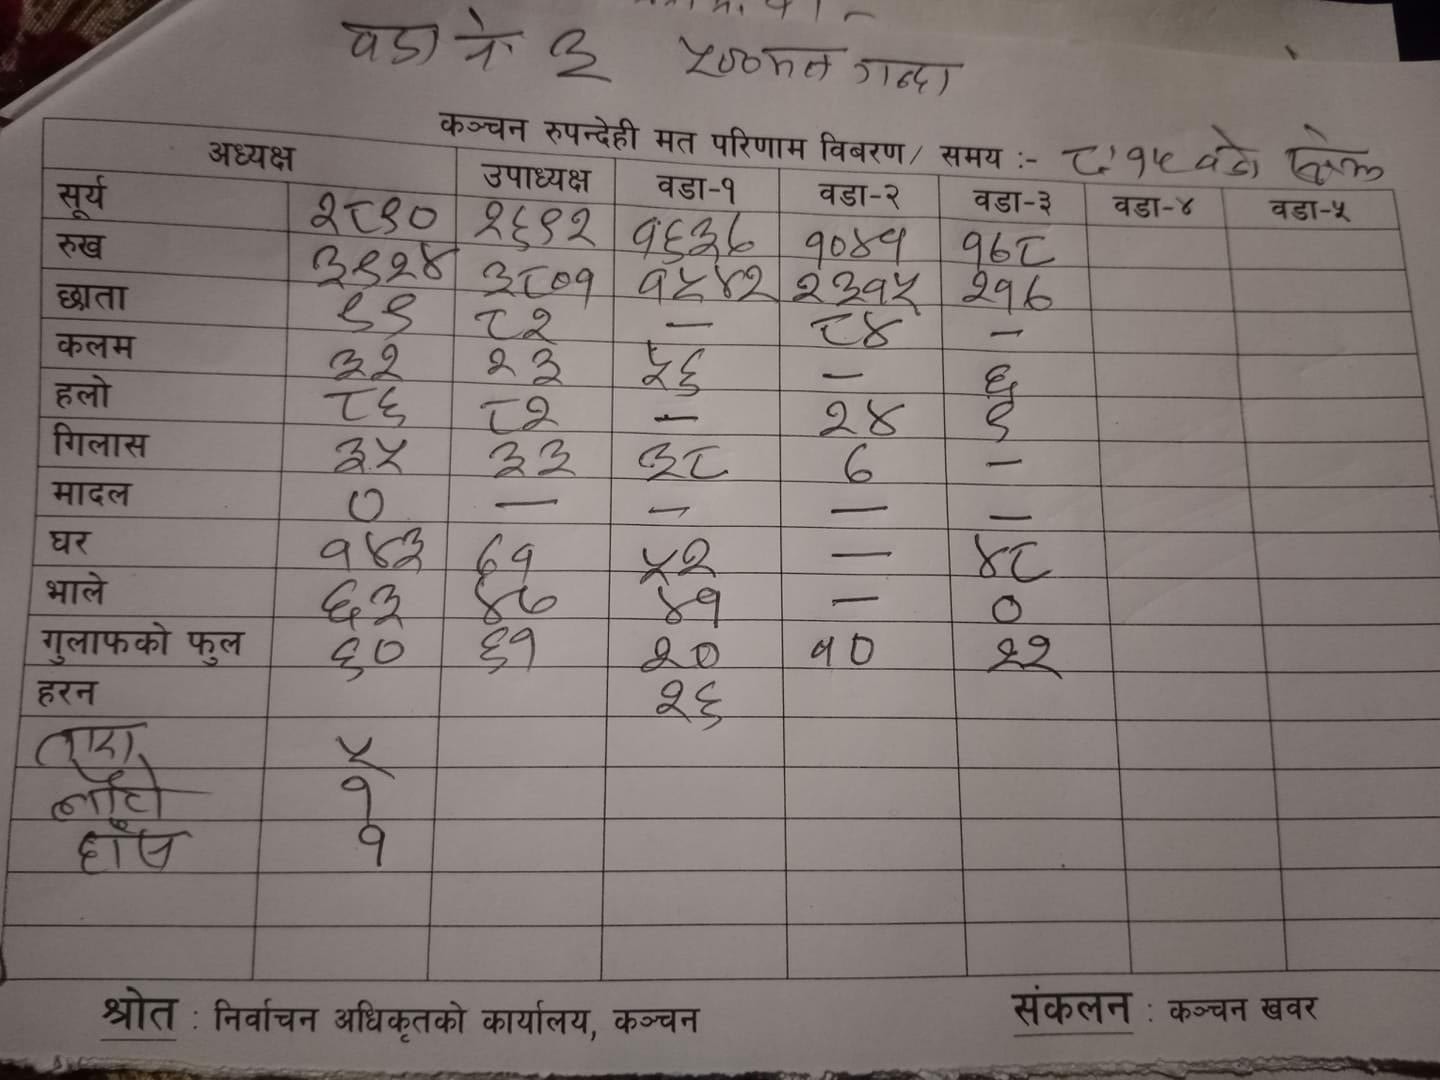 वडा नं ३ ५००मत गन्दा
कञ्चन रुपन्देही मत परिणाम विबरण/ समय :- ८:१५ बजे
अध्यक्ष उपाध्यक्ष वडा-१ वडा-२ वडा-३ वडा-४ वडा-५
सूर्य २८९० २६९२ १६३७ १०४१ १७८
रुख ३९२४ ३८०१ १५४२ २३१५ २१७
छाता ९९ ८२ — ८४ —
कलम ३२ २३ ५६ — ६
हलो ८६ ८२ — २४ ९
गिलास ३५ ३३ ३८ ७ —
मादल ० — — — —
घर १४३ ६१ ५२ — ४८
भाले ६३ ४७ ४१ — ०
गुलाफको फुल ६० ६१ २० १० २२
हरन २६
तारा ५
लाटो १
हाँस १
श्रोत : निर्वाचन अधिकृतको कार्यालय, कञ्चन संकलन : कञ्चन खवर